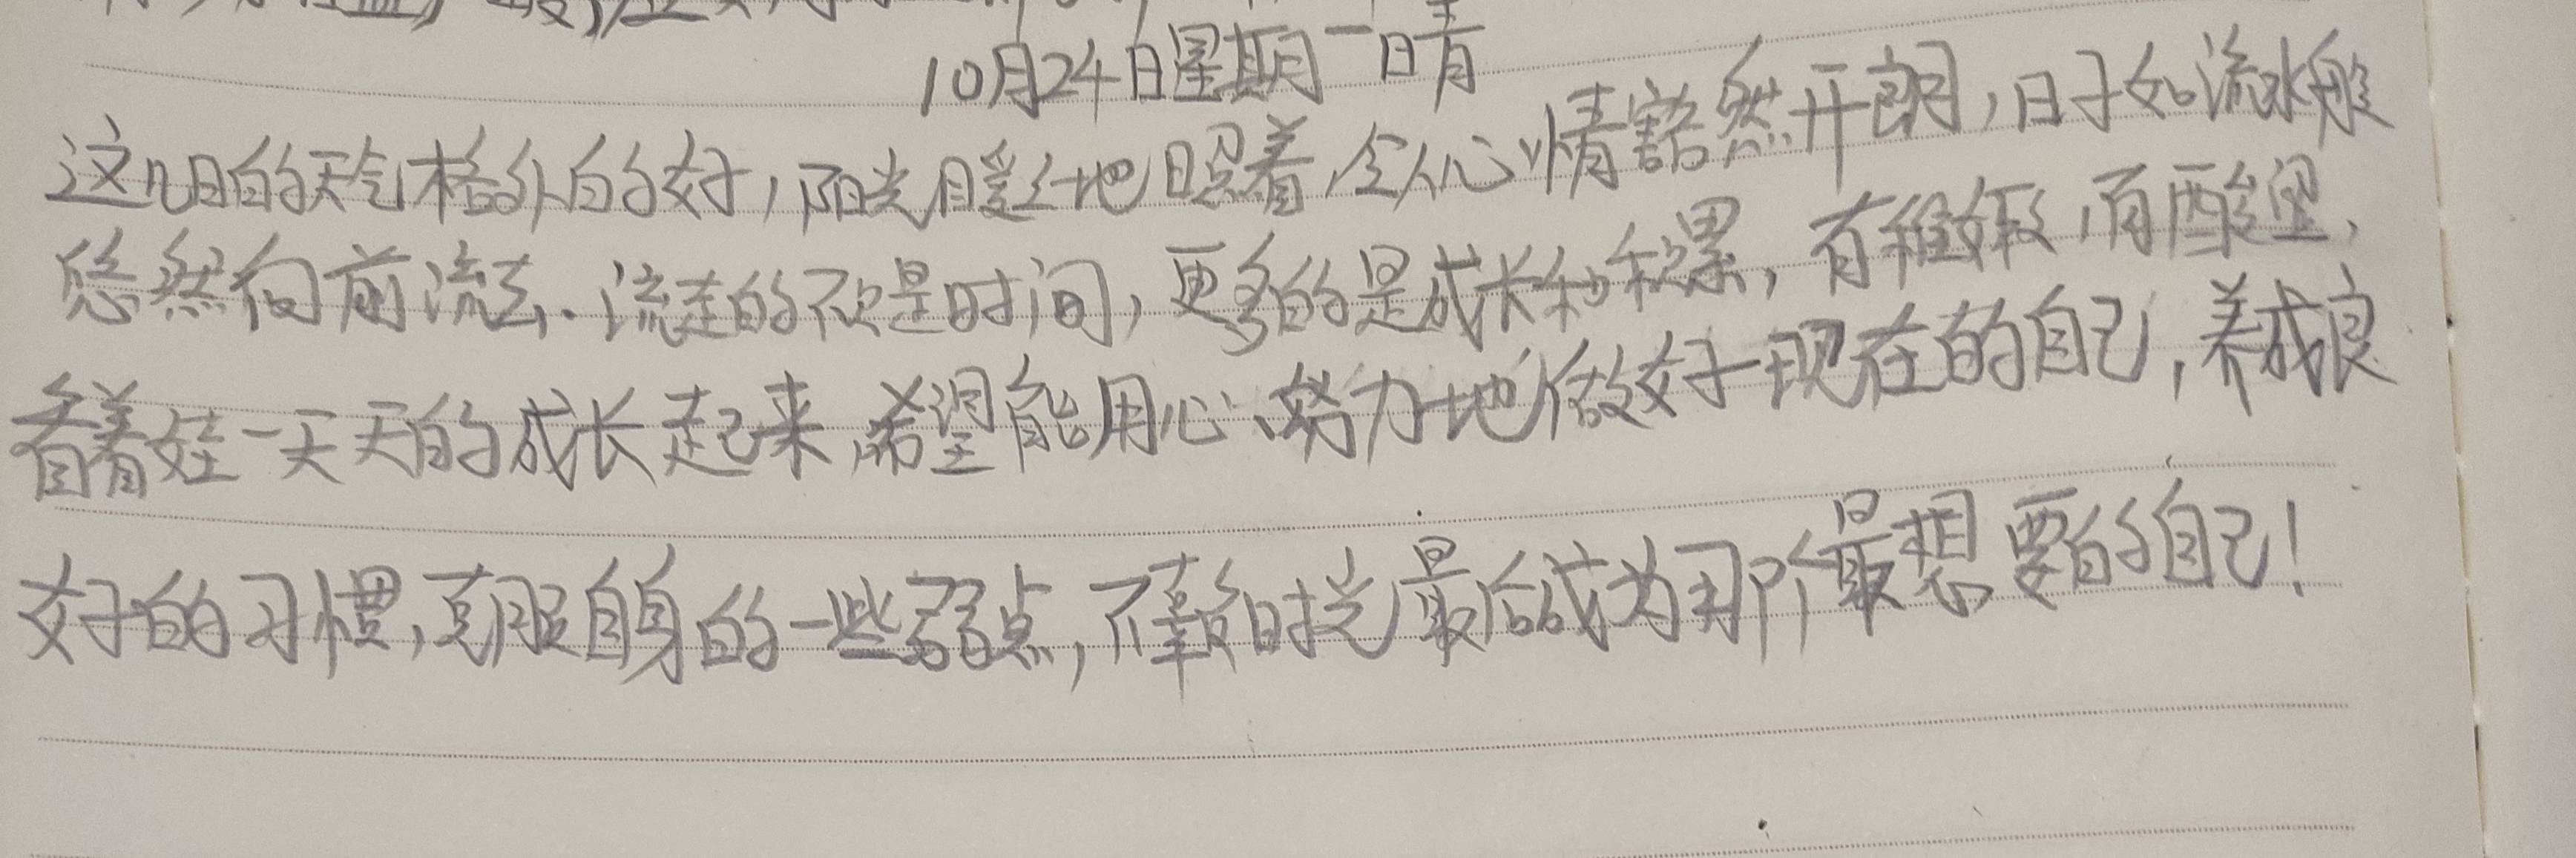 10月24日星期一晴
这几日的天气格外的好,阳光暖暖地照着,令人心情豁然开朗,日子如流水般
悠然向前流去.流走的不只是时间,更多的是成长和积累,有,有酸涩,
看着娃一天天的成长起来,希望能用心、努力地做好现在的自己,养成良
好的习惯,克服自身的一些弱点,不辜负时光最后成为那个最想要的自己!